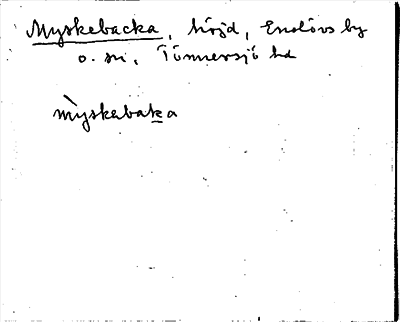 Myskebacka, höjd, Enslövs by
o. sn, Tönnersjö hd
mỳskabaka